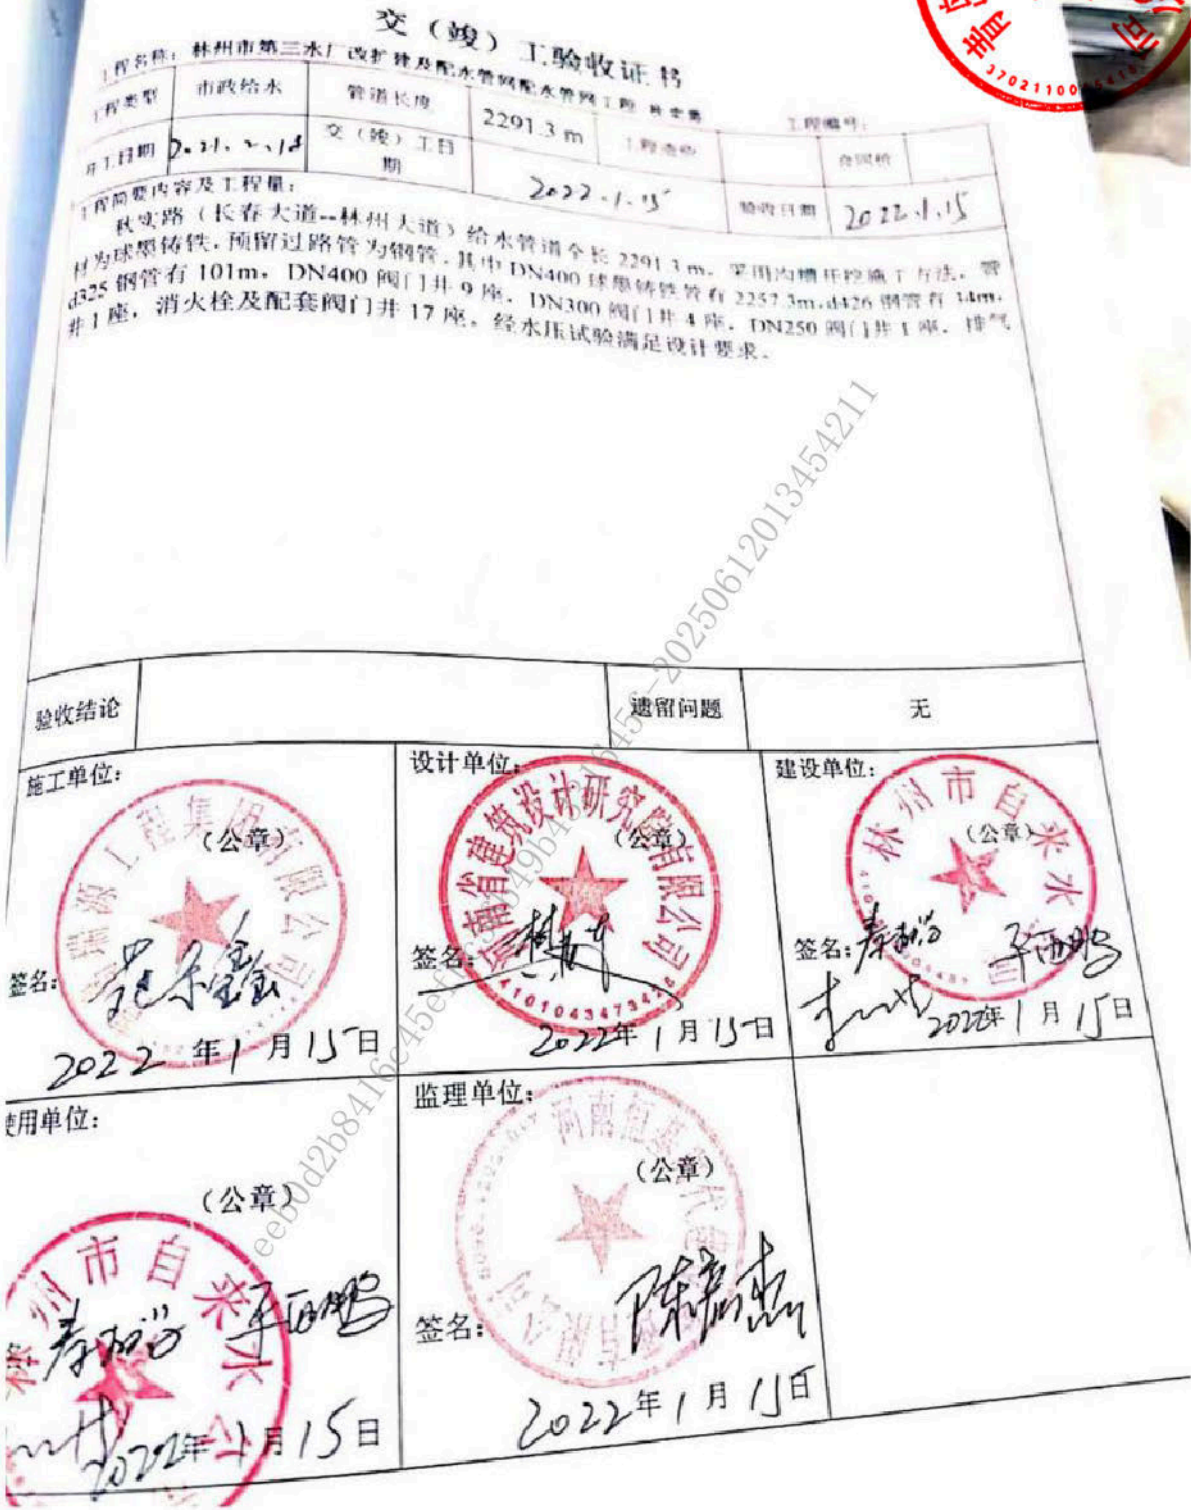 交（竣）工验收证书
工程名称：林州市第三水厂改扩建及配水管网配水管网工程
工程编号：
工程类型 市政给水 管道长度 2291.3 m 工程造价 合同价
开工日期 2021.2.18 交（竣）工日期 2022.1.15 验收日期 2022.1.15
工程简要内容及工程量：
秋实路（长春大道--林州大道）给水管道全长 2291.3 m，采用沟槽开挖施工方法，管
材为球墨铸铁，预留过路管为钢管，其中 DN400 球墨铸铁管有 2257.3m,d426 钢管有 34m，
d325 钢管有 101m，DN400 阀门井 9 座，DN300 阀门井 4 座，DN250 阀门井 1 座，排气
井 1 座，消火栓及配套阀门井 17 座，经水压试验满足设计要求。
验收结论 遗留问题 无
施工单位：
（公章）
源工程集团有限公司
签名：
2022 年 1 月 15 日
设计单位：
（公章）
河南省建筑设计研究院有限公司
签名：
2022年 1 月 15 日
建设单位：
（公章）
林州市自来水公司
签名：
2022年 1 月 15 日
使用单位：
（公章）
林州市自来水公
2022年 1 月 15 日
监理单位：
（公章）
签名：
2022 年 1 月 15 日